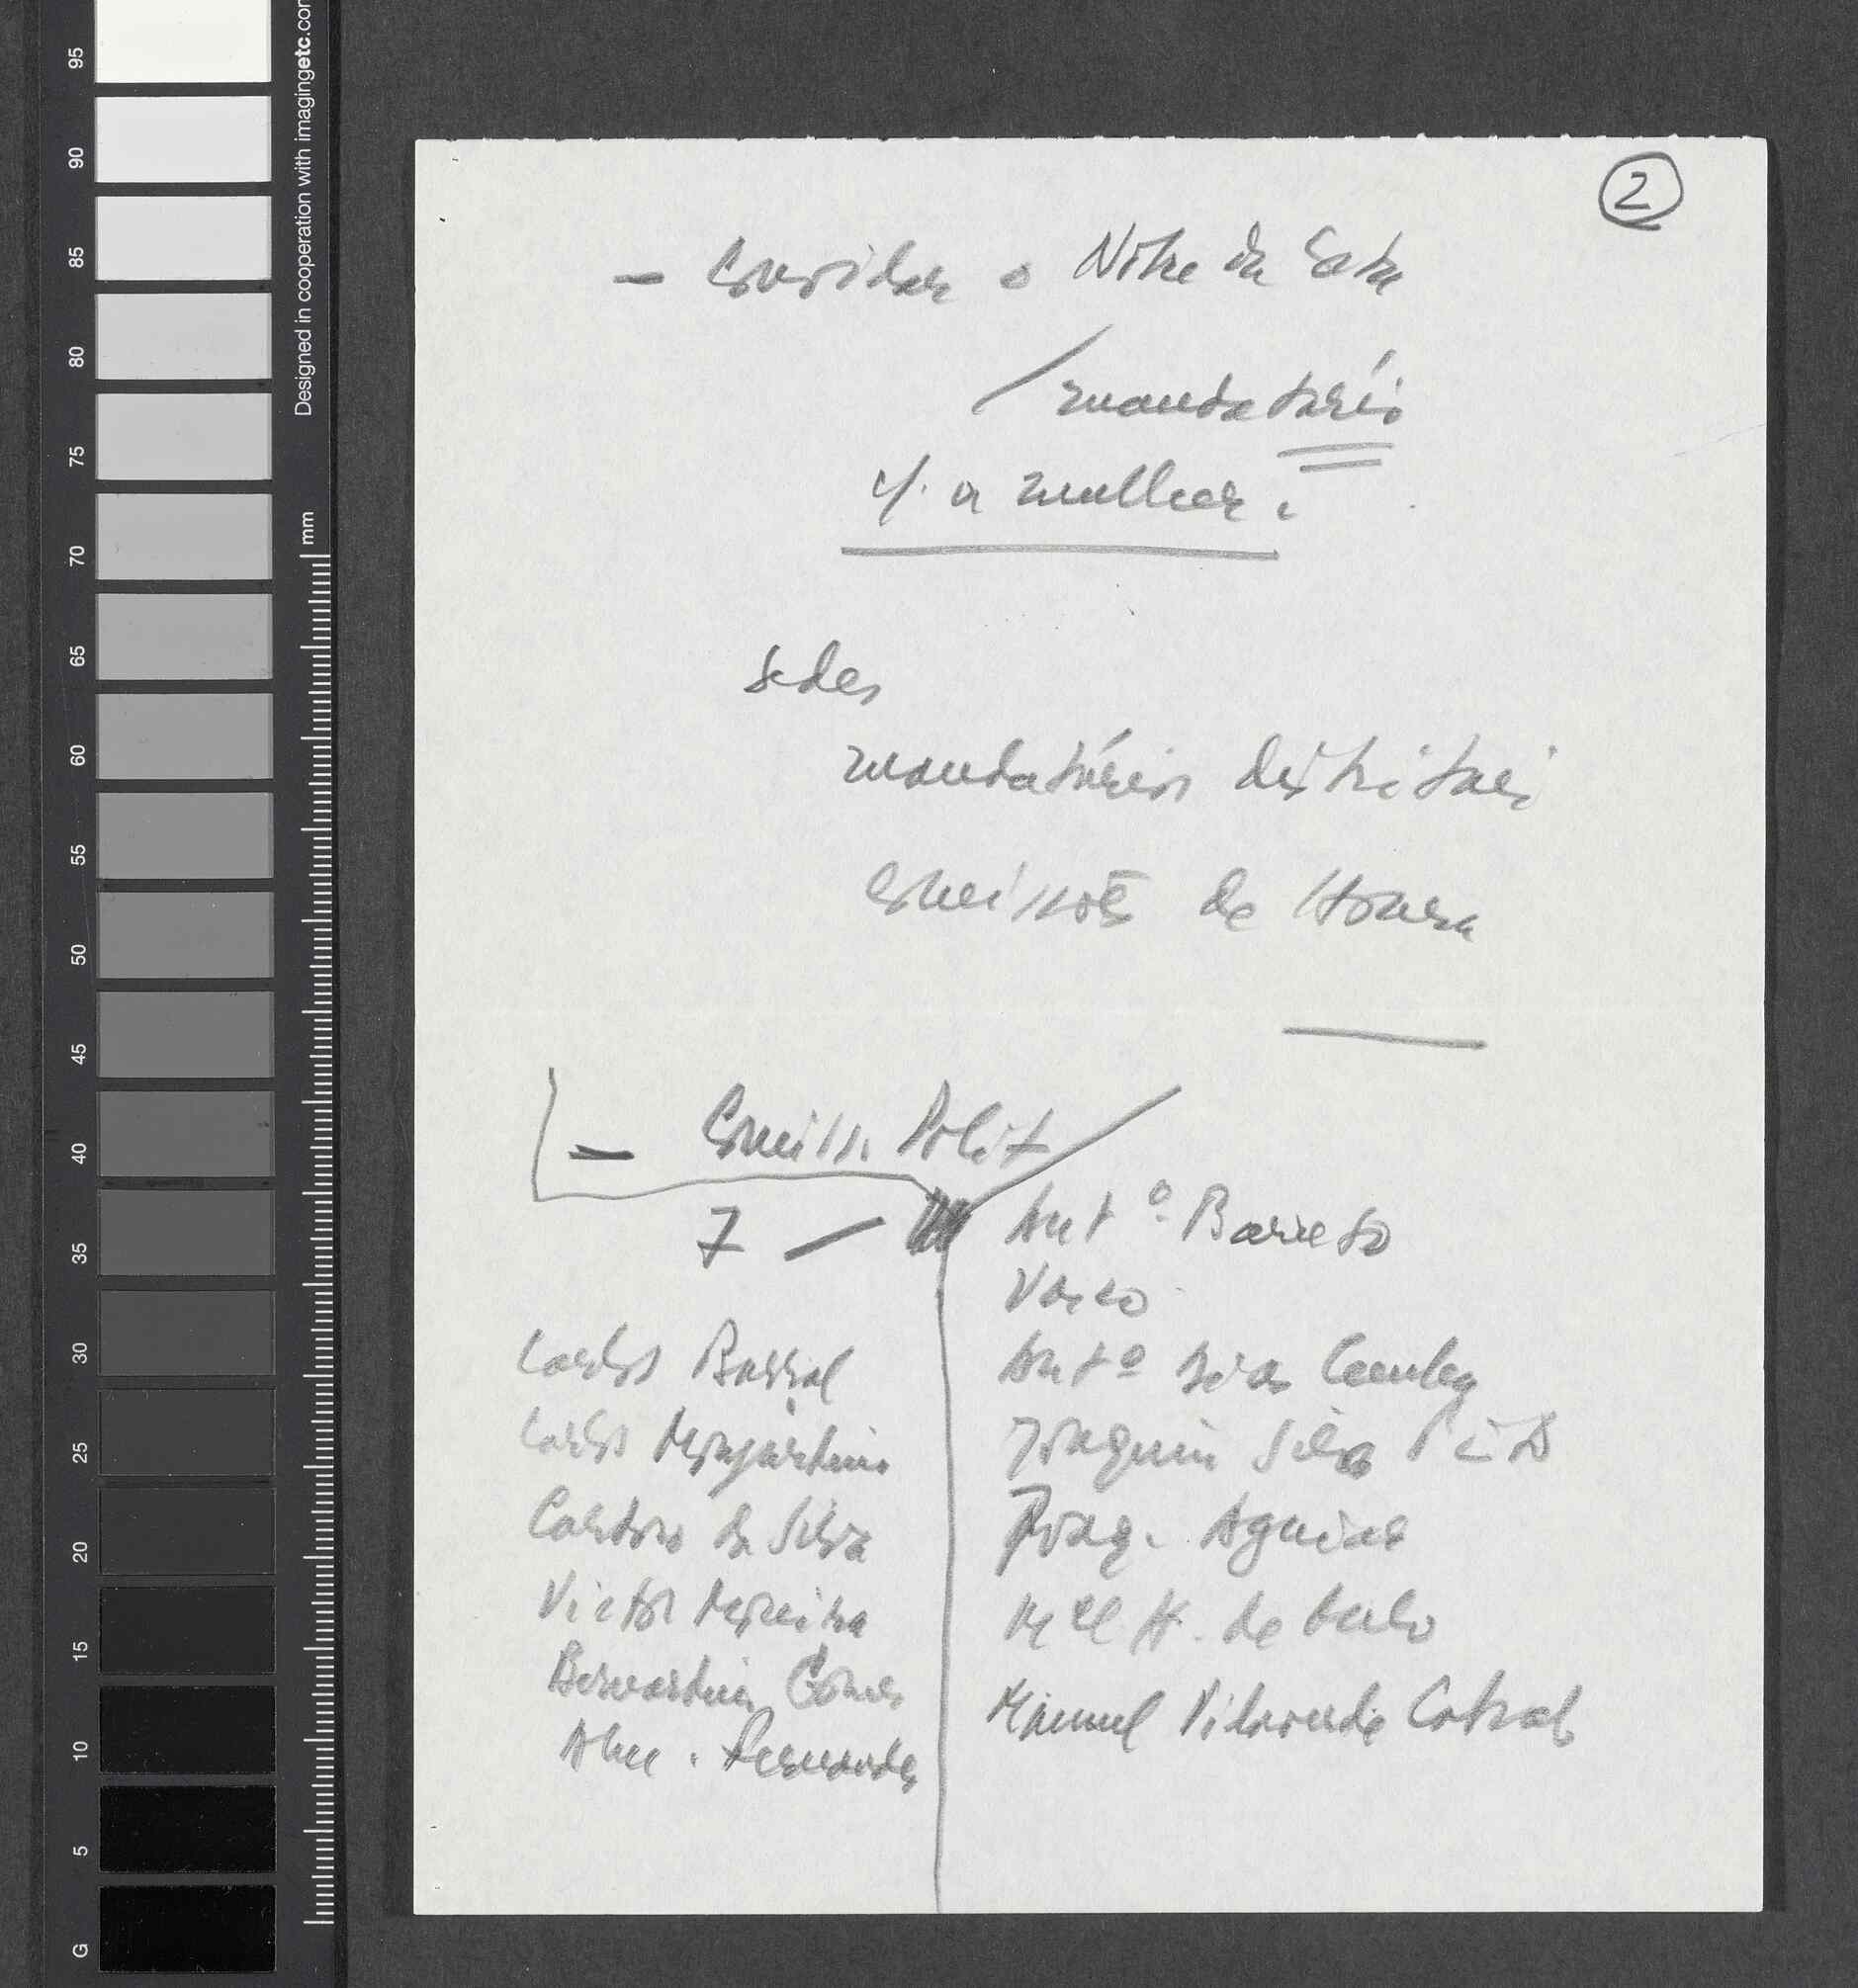 2
- Convidar o Nobre da Costa
mandatário
p/ a mulher.
sedes
mandatários distritais
comissões de Honra
- Comiss. Polit
7 — Antº Barreto
Vasco
Carlos Barral
Carlos Monjardino
Cardoso da Silva
Victor Moreira
Bernardino Gomes
Alm. Fernandes
Antº Dias Cunha
Joaquim Silva Pinto
Joaq. Aguiar
Mel H. de Melo
Manuel Villaverde Cabral
95
90
85
80
75
70
65
60
55
50
45
40
35
30
25
20
15
10
5
G
mm
Designed in cooperation with imagingetc.com